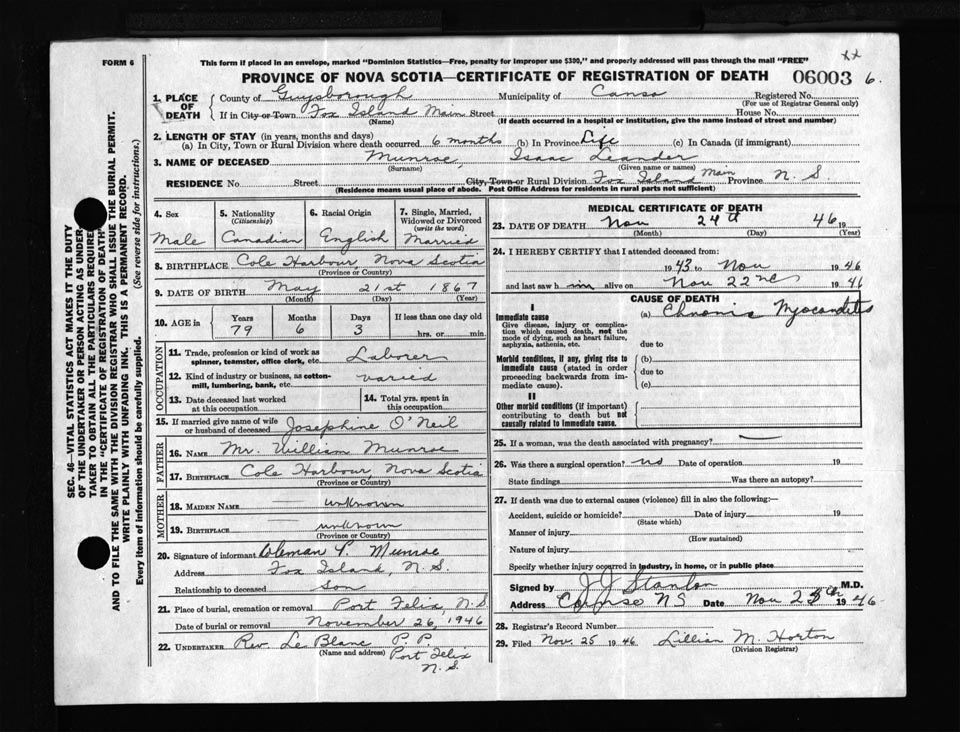 xx
FORM 6
This form if placed in an envelope, marked "Dominion Statistics—Free, penalty for improper use $300," and properly addressed will pass through the mail "FREE"
PROVINCE OF NOVA SCOTIA—CERTIFICATE OF REGISTRATION OF DEATH 06003 6.
1. PLACE OF DEATH
County of Guysborough Municipality of Canso Registered No.
(For use of Registrar General only)
If in City or Town Fox Island Main Street House No.
(Name) (If death occurred in a hospital or institution, give the name instead of street and number)
2. LENGTH OF STAY (in years, months and days)
(a) In City, Town or Rural Division where death occurred 6 months (b) In Province Life (c) In Canada (if immigrant)
3. NAME OF DECEASED Munroe, Isaac Leander
(Surname) (Given name or names)
RESIDENCE No. Street City, Town or Rural Division Fox Island Main Province N. S.
(Residence means usual place of abode. Post Office Address for residents in rural parts not sufficient)
4. Sex
Male
5. Nationality
(Citizenship)
Canadian
6. Racial Origin
English
7. Single, Married, Widowed or Divorced
(write the word)
Married
8. BIRTHPLACE Cole Harbour, Nova Scotia
(Province or Country)
9. DATE OF BIRTH May 21st 1867
(Month) (Day) (Year)
10. AGE in Years Months Days If less than one day old
79 6 3 hrs. or min.
OCCUPATION
11. Trade, profession or kind of work as spinner, teamster, office clerk, etc. Laborer
12. Kind of industry or business, as cotton-mill, lumbering, bank, etc. varied
13. Date deceased last worked at this occupation
14. Total yrs. spent in this occupation
15. If married give name of wife or husband of deceased Josephine O'Neil
FATHER
16. NAME Mr. William Munroe
17. BIRTHPLACE Cole Harbour, Nova Scotia
(Province or Country)
MOTHER
18. MAIDEN NAME unknown
19. BIRTHPLACE unknown
(Province or Country)
20. Signature of informant Coleman P. Munroe
Address Fox Island, N. S.
Relationship to deceased son
21. Place of burial, cremation or removal Port Felix, N. S.
Date of burial or removal November 26, 1946
22. UNDERTAKER Rev. Le Blanc P. P.
(Name and address) Port Felix
N. S.
MEDICAL CERTIFICATE OF DEATH
23. DATE OF DEATH Nov 24th 46 19
(Month) (Day) (Year)
24. I HEREBY CERTIFY that I attended deceased from:
19 43 to Nov 19 46
and last saw him alive on Nov 22nd 19 46
CAUSE OF DEATH
I
Immediate cause
Give disease, injury or complication which caused death, not the mode of dying, such as heart failure, asphyxia, asthenia, etc.
(a) Chronic Myocarditis
due to
Morbid conditions, if any, giving rise to immediate cause (stated in order proceeding backwards from immediate cause).
(b)
due to
(c)
II
Other morbid conditions (if important) contributing to death but not causally related to immediate cause.
25. If a woman, was the death associated with pregnancy?
26. Was there a surgical operation? no Date of operation 19
State findings Was there an autopsy?
27. If death was due to external causes (violence) fill in also the following:—
Accident, suicide or homicide? Date of injury 19
(State which)
Manner of injury
(How sustained)
Nature of injury
Specify whether injury occurred in industry, in home, or in public place
Signed by J J Stanton M.D.
Address Canso NS Date Nov 25th 19 46
28. Registrar's Record Number
29. Filed Nov. 25 19 46 Lillian M. Horton
(Division Registrar)
SEC. 46—VITAL STATISTICS ACT MAKES IT THE DUTY
OF THE UNDERTAKER OR PERSON ACTING AS UNDER-
TAKER TO OBTAIN ALL THE PARTICULARS REQUIRED
IN THE "CERTIFICATE OF REGISTRATION OF DEATH"
AND TO FILE THE SAME WITH THE DIVISION REGISTRAR WHO SHALL ISSUE THE BURIAL PERMIT.
WRITE PLAINLY WITH UNFADING INK. THIS IS A PERMANENT RECORD.
Every item of information should be carefully supplied. (See reverse side for instructions.)